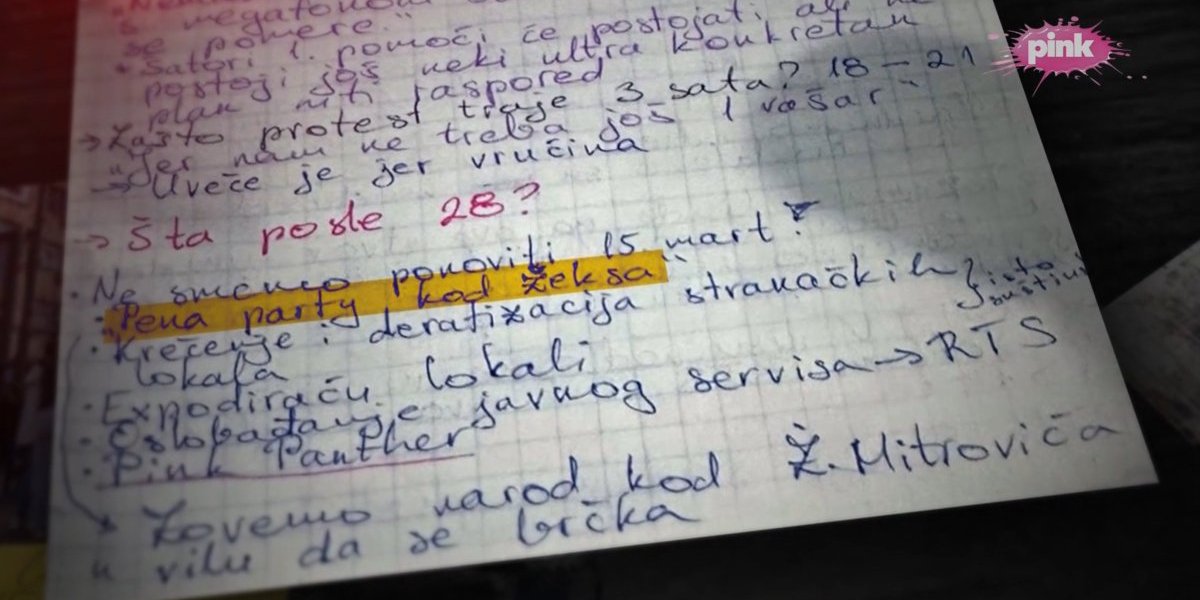 s megafonom
se pomere."
• Šatori 1. pomoći će postojati, ali ne
postoji još neki ultra konkretan
plan niti raspored
→ Zašto protest traje 3 sata? 18 – 21
"Jer nam ne treba još 1 vašar"
→ Uveče je jer vrućina
→ Šta posle 28?
• Ne smemo ponoviti 15. mart!
• "Pena party kod Žeksa"
• Krečenje i deratizacija stranačkih
lokala
• Expodiraću lokali
• Oslobađanje javnog servisa → RTS
• Pink Panther
Zovemo narod kod Ž. Mitrovića
u vilu da se brčka
pink